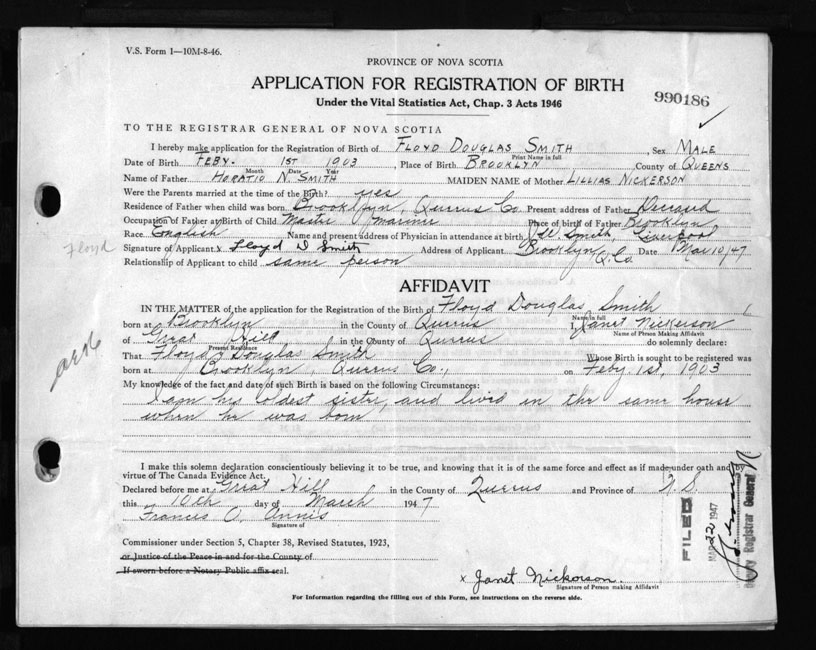 V.S. Form 1—10M-8-46.
PROVINCE OF NOVA SCOTIA
APPLICATION FOR REGISTRATION OF BIRTH
Under the Vital Statistics Act, Chap. 3 Acts 1946
990186
TO THE REGISTRAR GENERAL OF NOVA SCOTIA
I hereby make application for the Registration of Birth of FLOYD DOUGLAS SMITH, Sex MALE
Print Name in full
Date of Birth FEBY. 1ST 1903, Place of Birth BROOKLYN County of QUEENS
Month Date Year
Name of Father HORATIO N. SMITH MAIDEN NAME of Mother LILLIAS NICKERSON
Were the Parents married at the time of the Birth? yes
Residence of Father when child was born Brooklyn, Queens Co. Present address of Father Deceased
Occupation of Father at Birth of Child Master mariner Place of birth of Father Brooklyn
Race English Name and present address of Physician in attendance at birth Smith, Liverpool
Floyd
Signature of Applicant x Floyd D Smith Address of Applicant Brooklyn Q. Co. Date Mar 10/47
Relationship of Applicant to child same person
AFFIDAVIT
IN THE MATTER of the application for the Registration of the Birth of Floyd Douglas Smith
Name in full
born at Brooklyn in the County of Queens I, Janet Nickerson
Name of Person Making Affidavit
of Great Hill in the County of Queens do solemnly declare:
Present Residence
That Floyd Douglas Smith Whose Birth is sought to be registered was
born at Brooklyn, Queens Co., on Feby. 1st, 1903
My knowledge of the fact and date of such Birth is based on the following Circumstances:
I am his oldest sister, and lived in the same house
when he was born
I make this solemn declaration conscientiously believing it to be true, and knowing that it is of the same force and effect as if made under oath and by
virtue of The Canada Evidence Act.
Declared before me at Great Hill in the County of Queens and Province of N.S.
this 10th day of March 1947
Frances O. Annis
Signature of
Commissioner under Section 5, Chapter 38, Revised Statutes, 1923,
or Justice of the Peace in and for the County of
If sworn before a Notary Public affix seal.
FILED
MAR 22 1947
Deputy Registrar General
x Janet Nickerson.
Signature of Person making Affidavit
For Information regarding the filling out of this Form, see instructions on the reverse side.